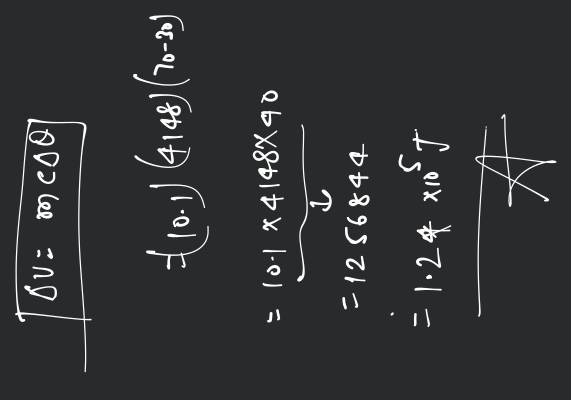 ΔU = mcΔθ
= (10.1) (4148) (70-30)
= 10.1 × 4148 × 40
↓
= 1256844
= 1.24 ×10⁵ J